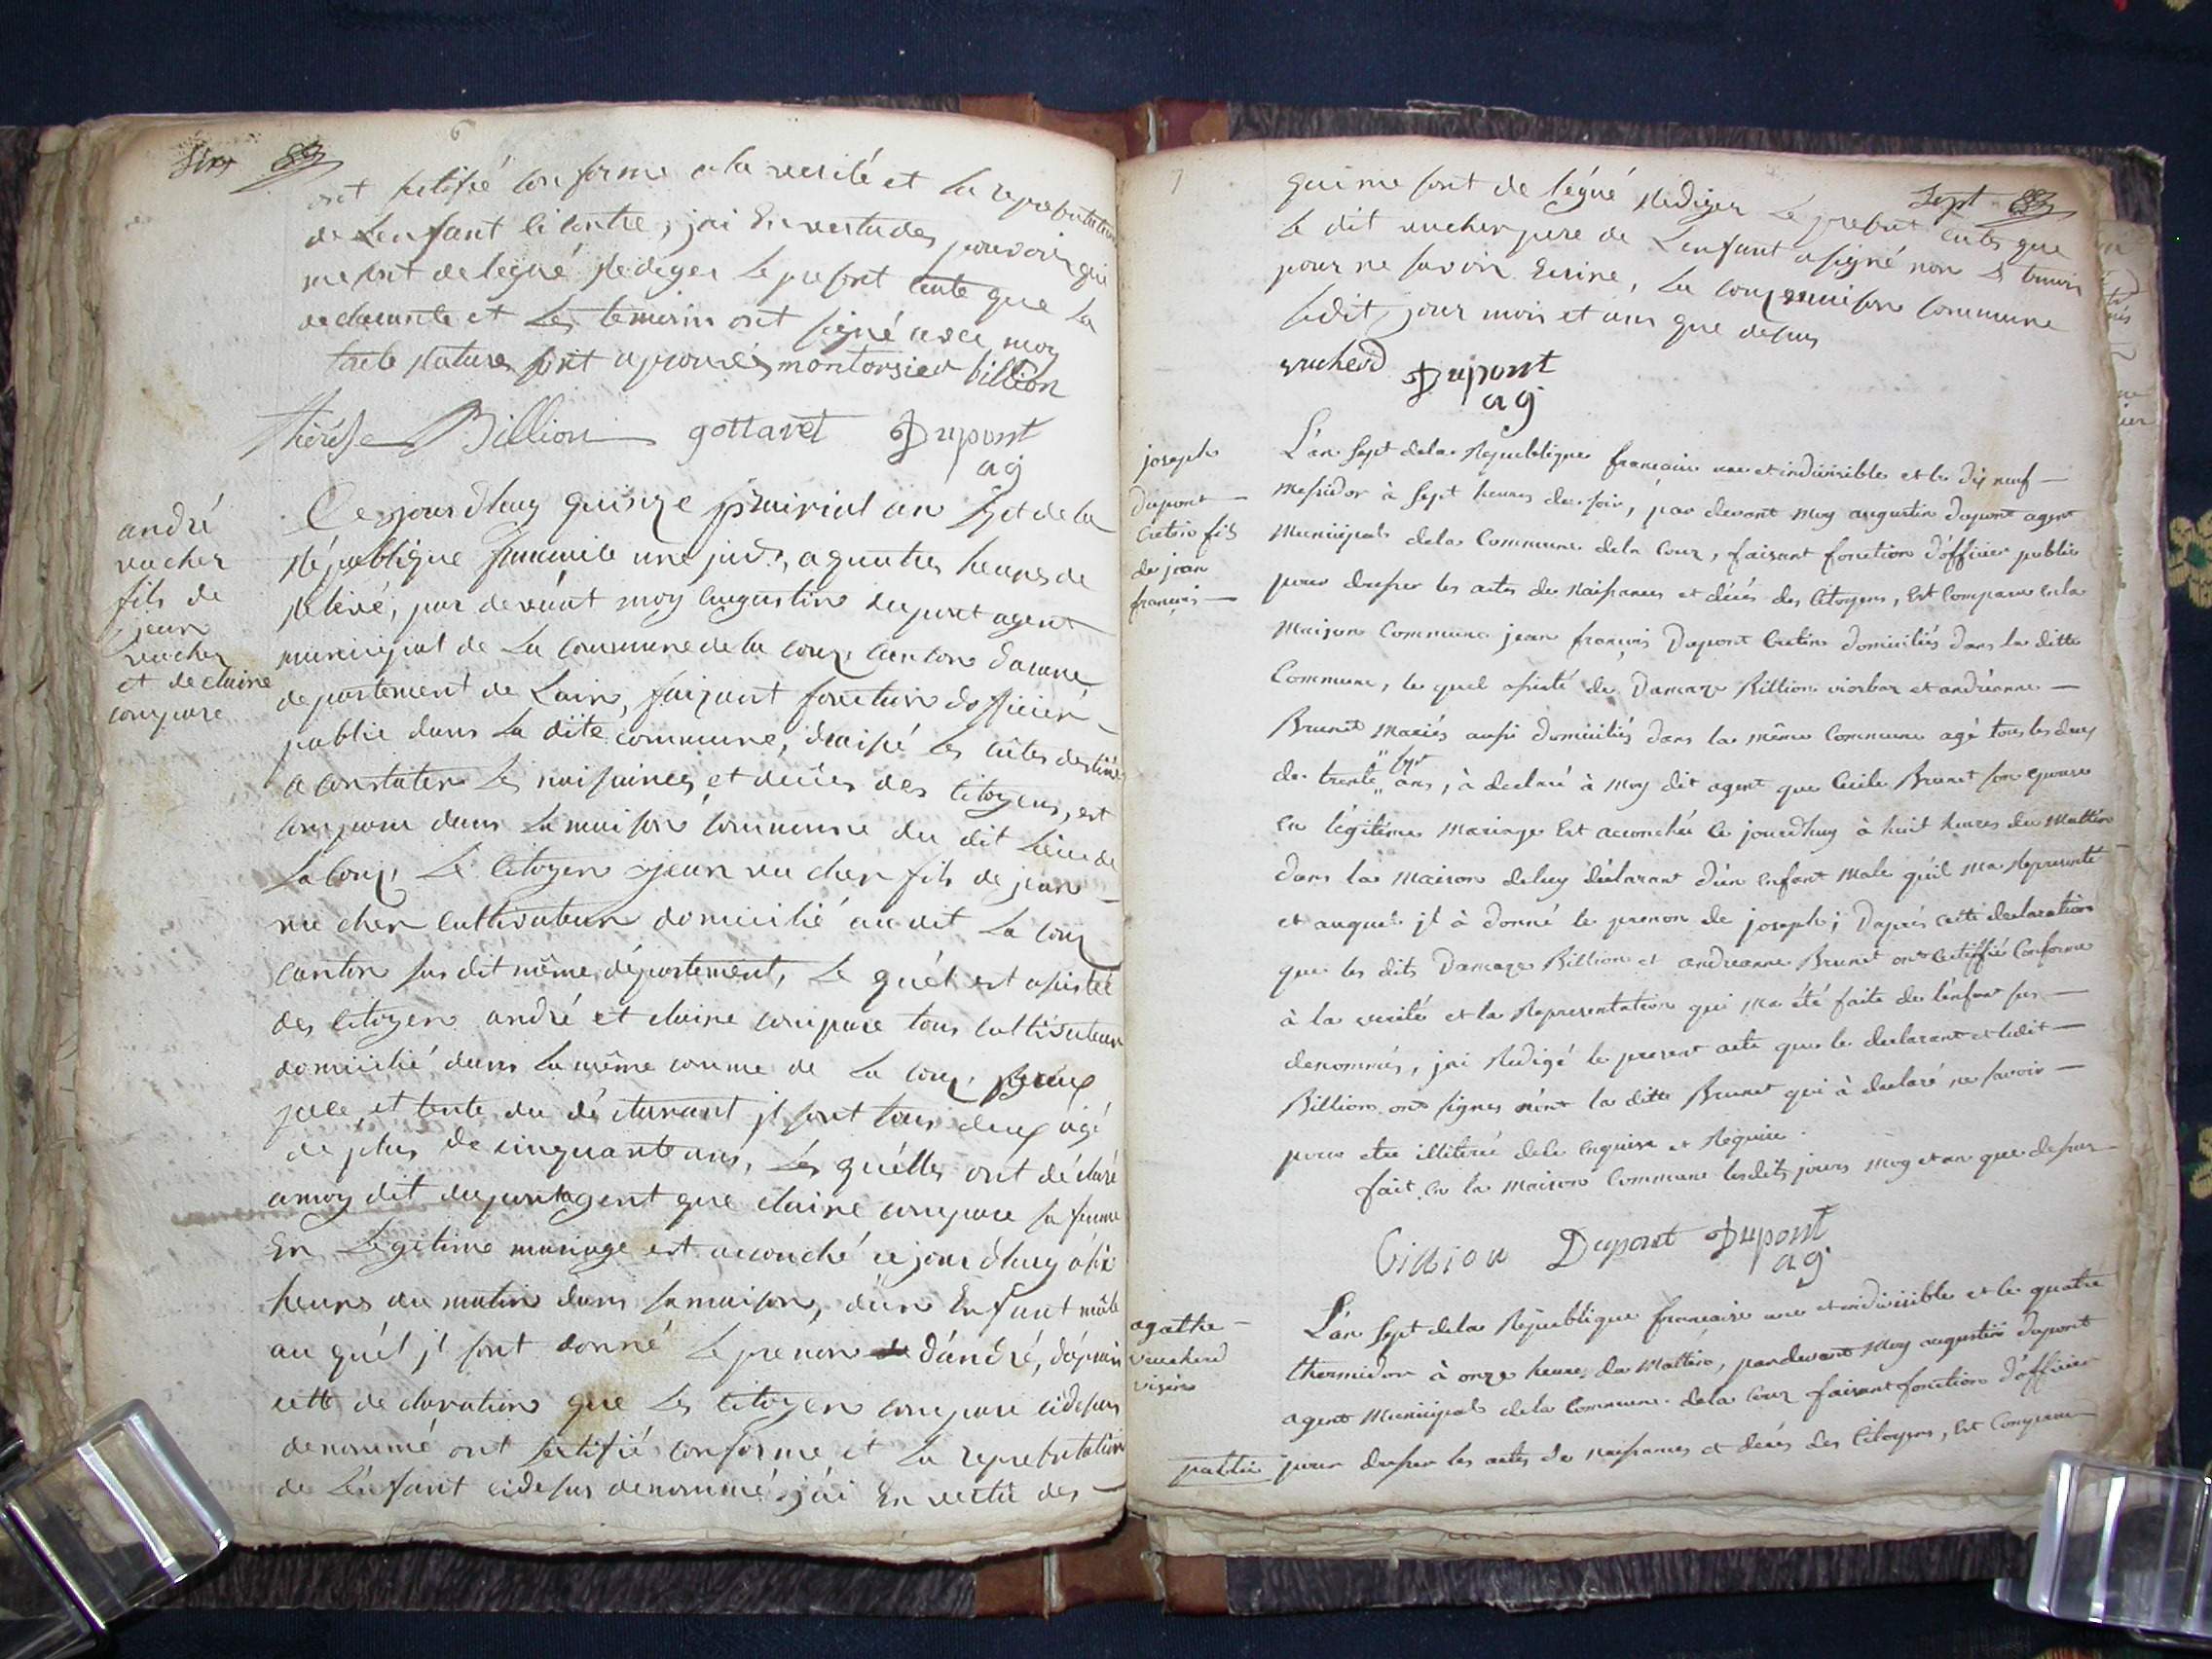 Six
6
ont sertifié conforme a la verité et la representation
de Lenfant ci contre, jai En vertu des pouvoir qui
me sont delegué Rediger le present acte que la
declarante et les temoins ont signé avec moy
sont aprouvés montorsier billion
thérése Billion gottaret Dupont
ag
andré
vucher
fils de
jean
vucher
et de claine
compare
Ce jourdhuy quinze prairial an Sept de la
République francaise une jnd., a quatres heures de
Relevé, par devant moy augustin dupont agent
municipal de La commune de la Couz, canton
département de Lain, faizant fonction dofficier
public dans La dite commune, les actes destiné
a constater Les naissances et décés des citoyens, est
comparu dans La maison commune du dit Lieu de
La Couz, Le Citoyen jean vucher fils de jean
vucher cultivateur domicilié au dit La Couz
canton sus dit même département, Le quél est assisté
des citoyen andré et claine compare tous cultivateur
domicilié dans La même comme de La Couz,
et tente du déclarant jl sont tous deux agé
de plus de cinquante ans, Les quélles ont déclaré
amoy dit dupont agent que claine compare sa femme
En Legitime mariage est acouché ce jourdhuy a six
heures du matin dans sa maison, dun Enfant mâle
au quél jl sont donné Le prenon dándré, dápres
cette declaration que Les Citoyen compare cidesus
denommé ont sertifié conforme et La representation
de Lénfant cidesus denommé jái En vertu des
7
Sept
qui me sont delégué Rediger Le present actes que
Le dit vucher pere de Lenfant a signé non Les temoin
pour ne savoir Ecrire, La Couz maison commune
Ledit jour mois et ans que desus
vucherd Dupont
ag
joseph
dupont
Cretin fils
de jean
francois
L'an Sept de la République francaise une et indivisible et le dix neuf
Messidor à Sept heures du soir, par devant moy augustin dupont agent
Municipal de la Commune de la Couz, faisant fonction d'officier public
pour dresser les actes de Naissances et décés des Citoyens, est comparu en la
Maison Commune jean françois Dupont Cretin domicilié dans la ditte
Commune, le quel assisté de Damaze Billion viorbaz et andréanne
Brunet Mariés aussi domiciliés dans la même Commune agé tous les deux
de trente " sept " ans, à declaré à moy dit agent que Cecile Brunet son epouse
en légitime Mariage est accouchée ce jourdhuy à huit heures du Mattin
dans la Maison de luy déclarant d'un enfant Male qu'il ma Representé
et auquel jl à donné le prenom de joseph; D'aprés cette declaration
que les dits Damaze Billion et andreanne Brunet ont certiffié Conforme
à la verité et la Representation qui ma été faite de l'enfant sus
denommés, jai Redigé le present acte que le declarant et ledit
Billion ont signés nént la ditte Brunet qui à declaré ne savoir
pour etre illiteré de le enquise et Requise.
fait en la Maison Commune les dits jours Moy et an que desus
billion Dupont Dupont
ag
agathe
vucherd
L'an Sept de la République francaise une et indivisible et le quatre
thermidor à onze heures du Mattin, pardevant Moy augustin dupont
agent Municipal de la Commune de la Couz faisant fonction d'officier
public pour dresser les actes de naissances et décés des Citoyens, est Comparu